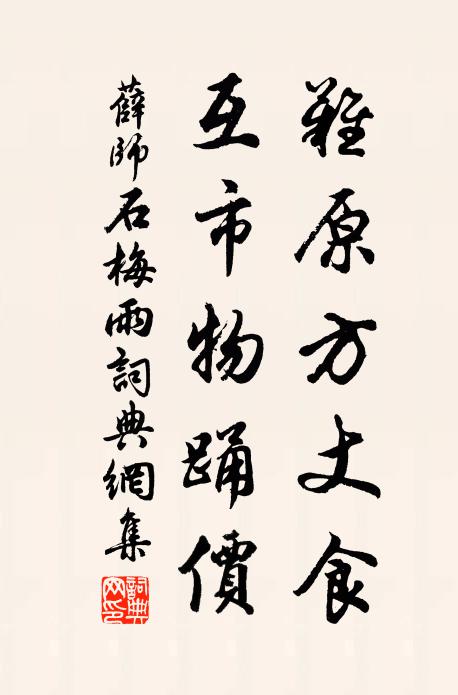 難原方丈食
互市物踊價
薛師石梅雨詞典網集
詞典網印